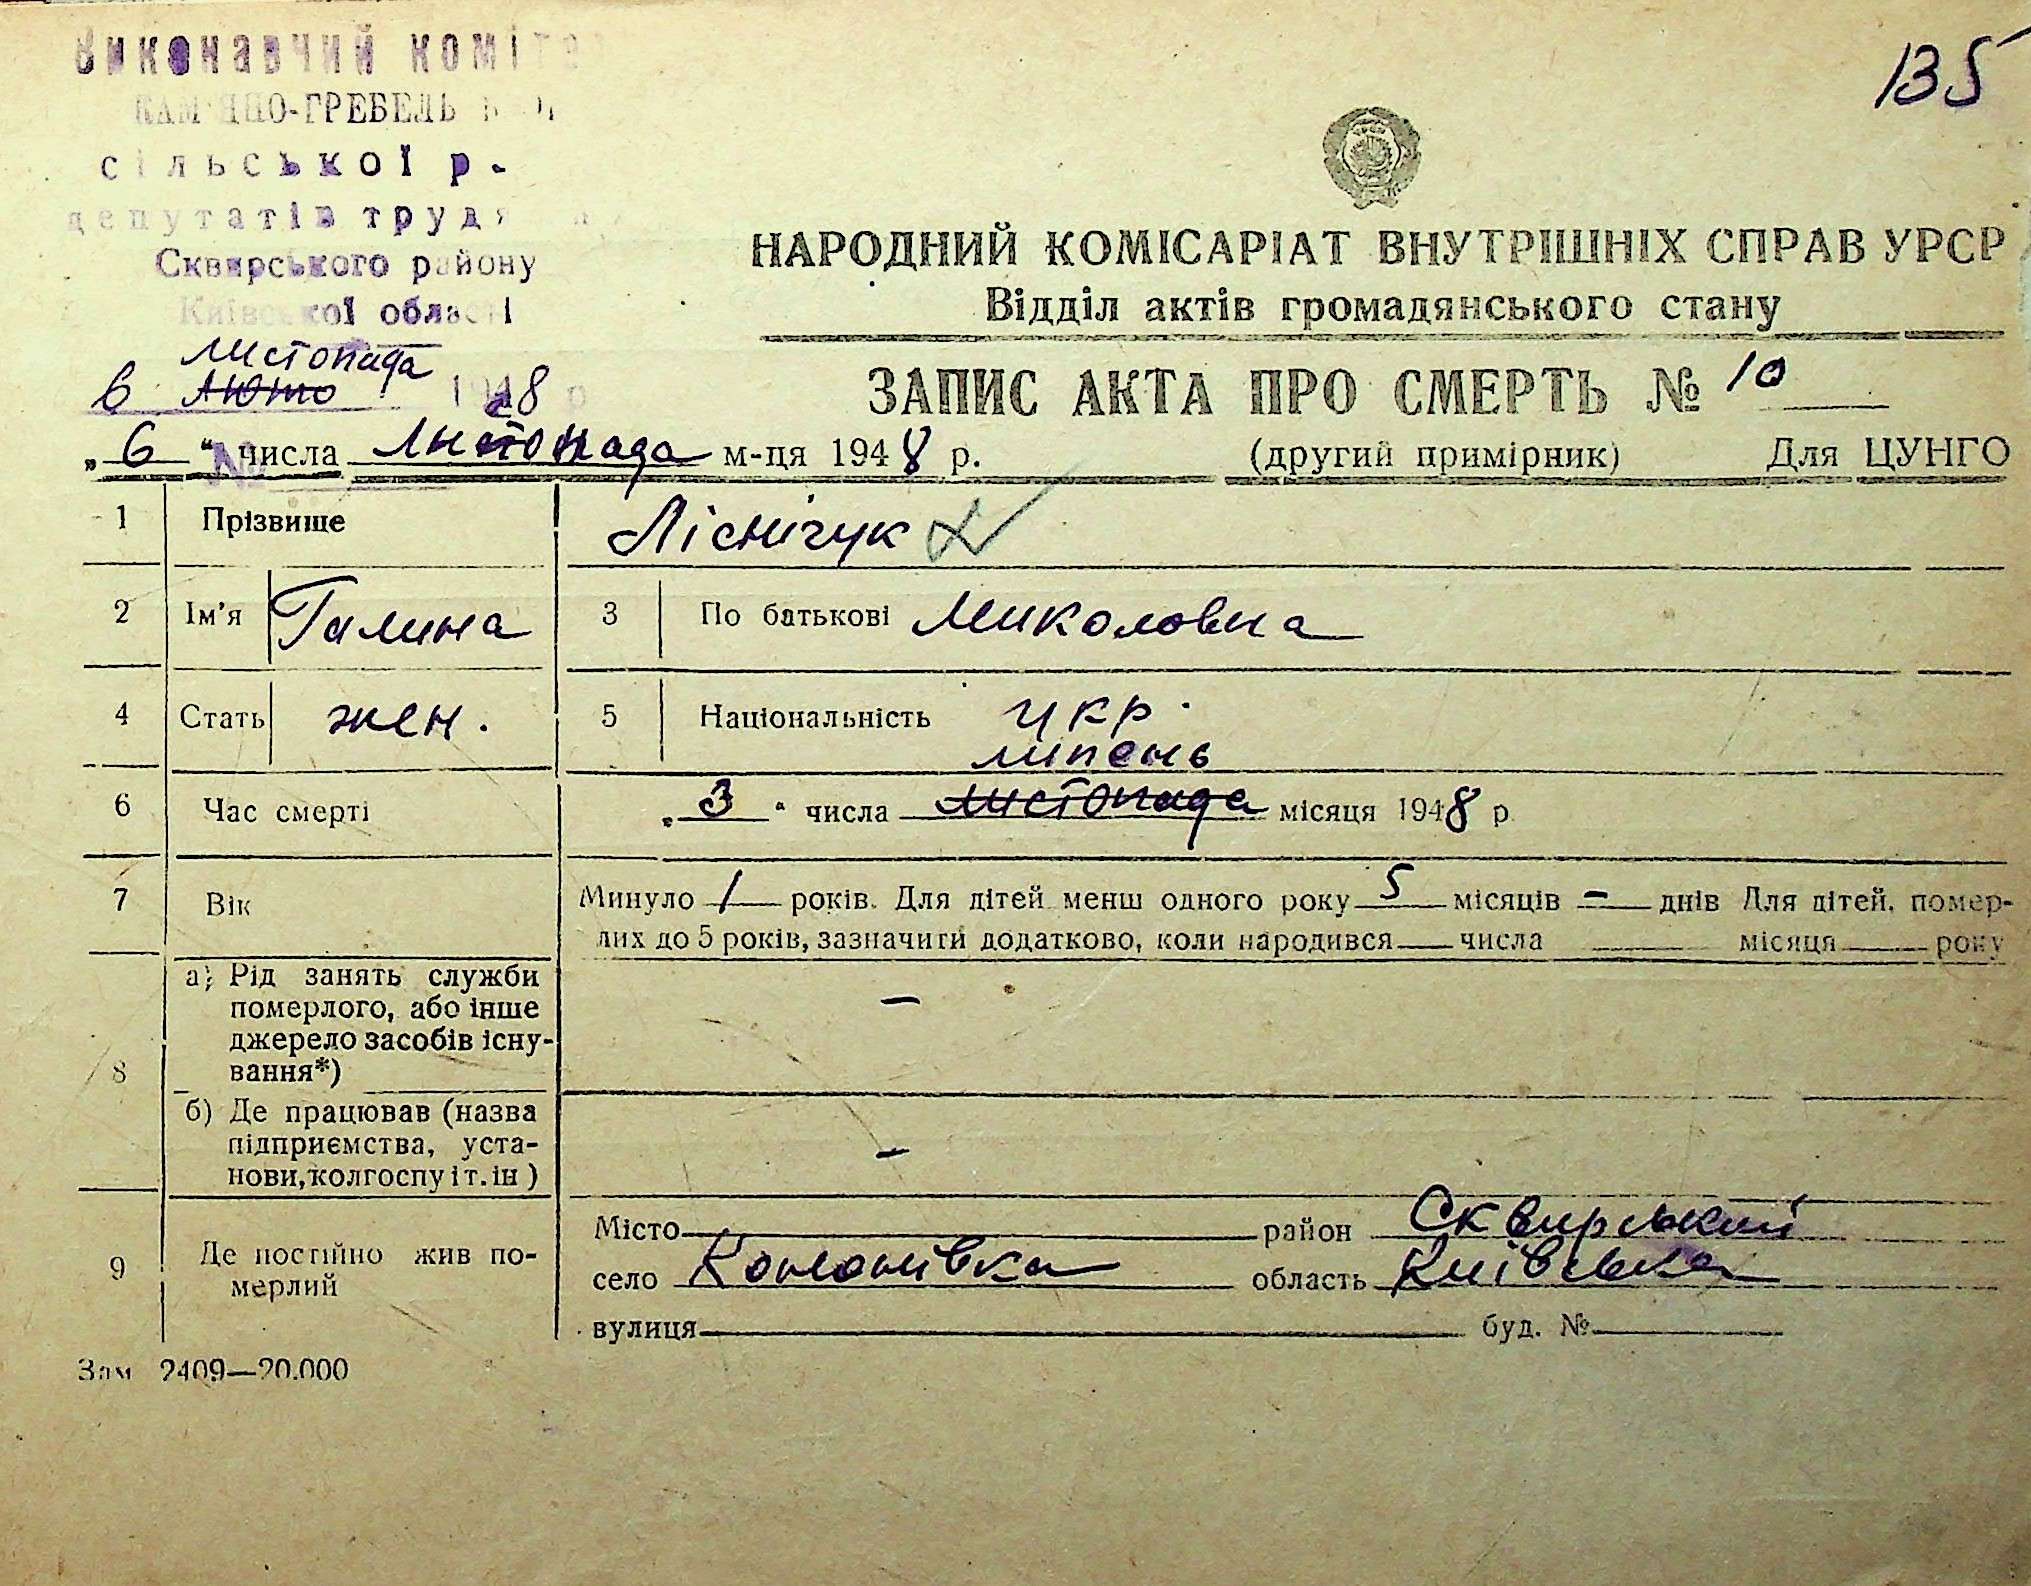 135
Виконавчий коміте
КАМ'ЯНО-ГРЕБЕЛЬ
сільської р.
депутатів трудя
Сквирського району
Київської області
листопада
6 люто 1948 р
НАРОДНИЙ КОМІСАРІАТ ВНУТРІШНІХ СПРАВ УРСР
Відділ актів громадянського стану
ЗАПИС АКТА ПРО СМЕРТЬ № 10
„6“ числа листопада м-ця 1948 р. (другий примірник) Для ЦУНГО
№
1 Прізвище Ліснічук
2 Ім’я Галина 3 По батькові Миколовна
4 Стать жен. 5 Національність укр.
липень
6 Час смерті „3“ числа листопада місяця 1948 р
7 Вік Минуло 1 років. Для дітей менш одного року 5 місяців – днів Для дітей, помер-
лих до 5 років, зазначити додатково, коли народився числа місяця року
8 а) Рід занять служби
померлого, або інше
джерело засобів існу-
вання*) –
б) Де працював (назва
підприємства, уста-
нови, колгоспу і т. ін ) –
9 Де постійно жив по-
мерлий
Місто район Сквирський
село Кононівка область Київська
вулиця буд. №
Зам 2409—20.000